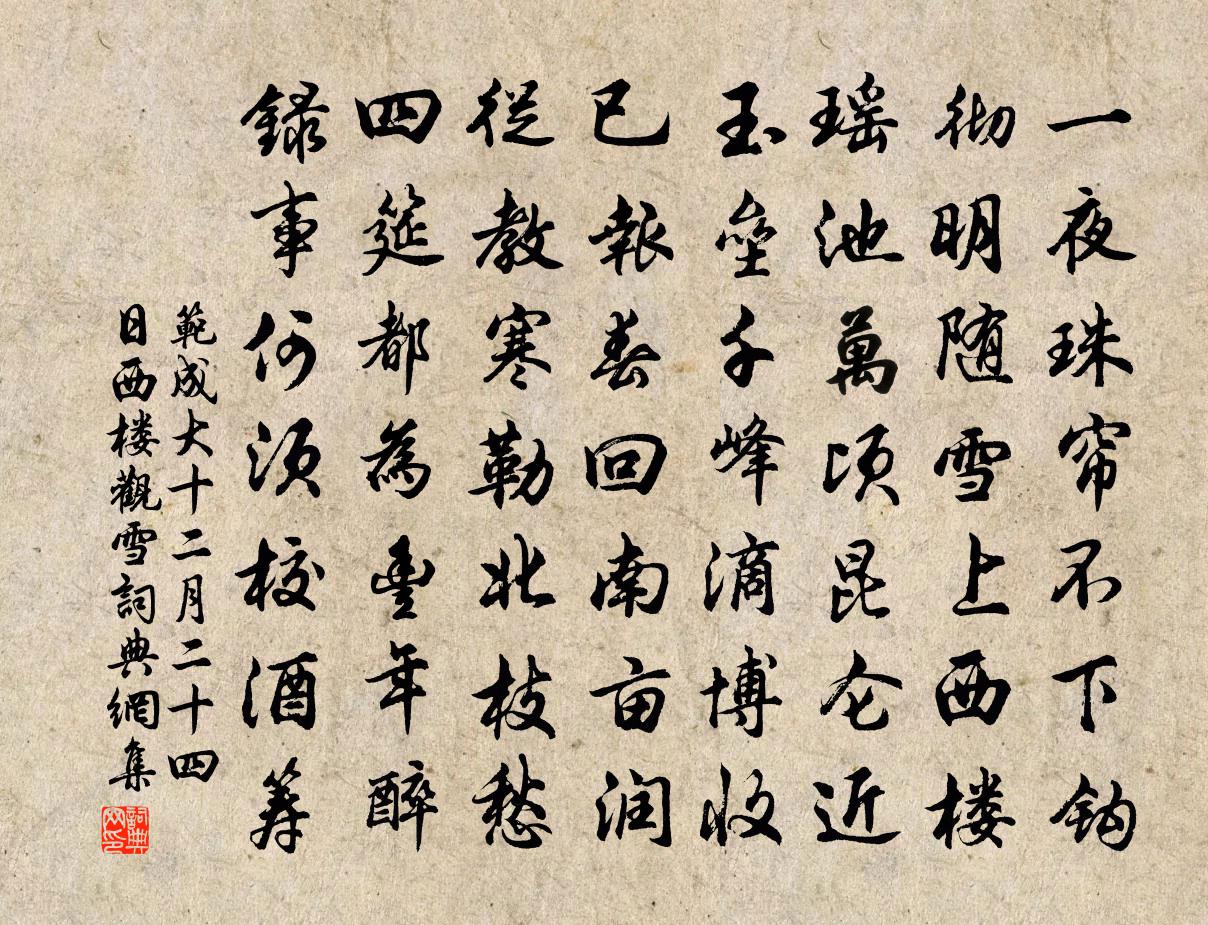 一夜珠帘不下钩
彻明随雪上西楼
瑶池萬顷昆仑近
玉壘千峰滴博收
已報春回南亩润
從教寒勒北枝愁
四筵都為豊年醉
録事何须校酒筹
範成大十二月二十四
日西楼觀雪詞典網集
詞典
网印